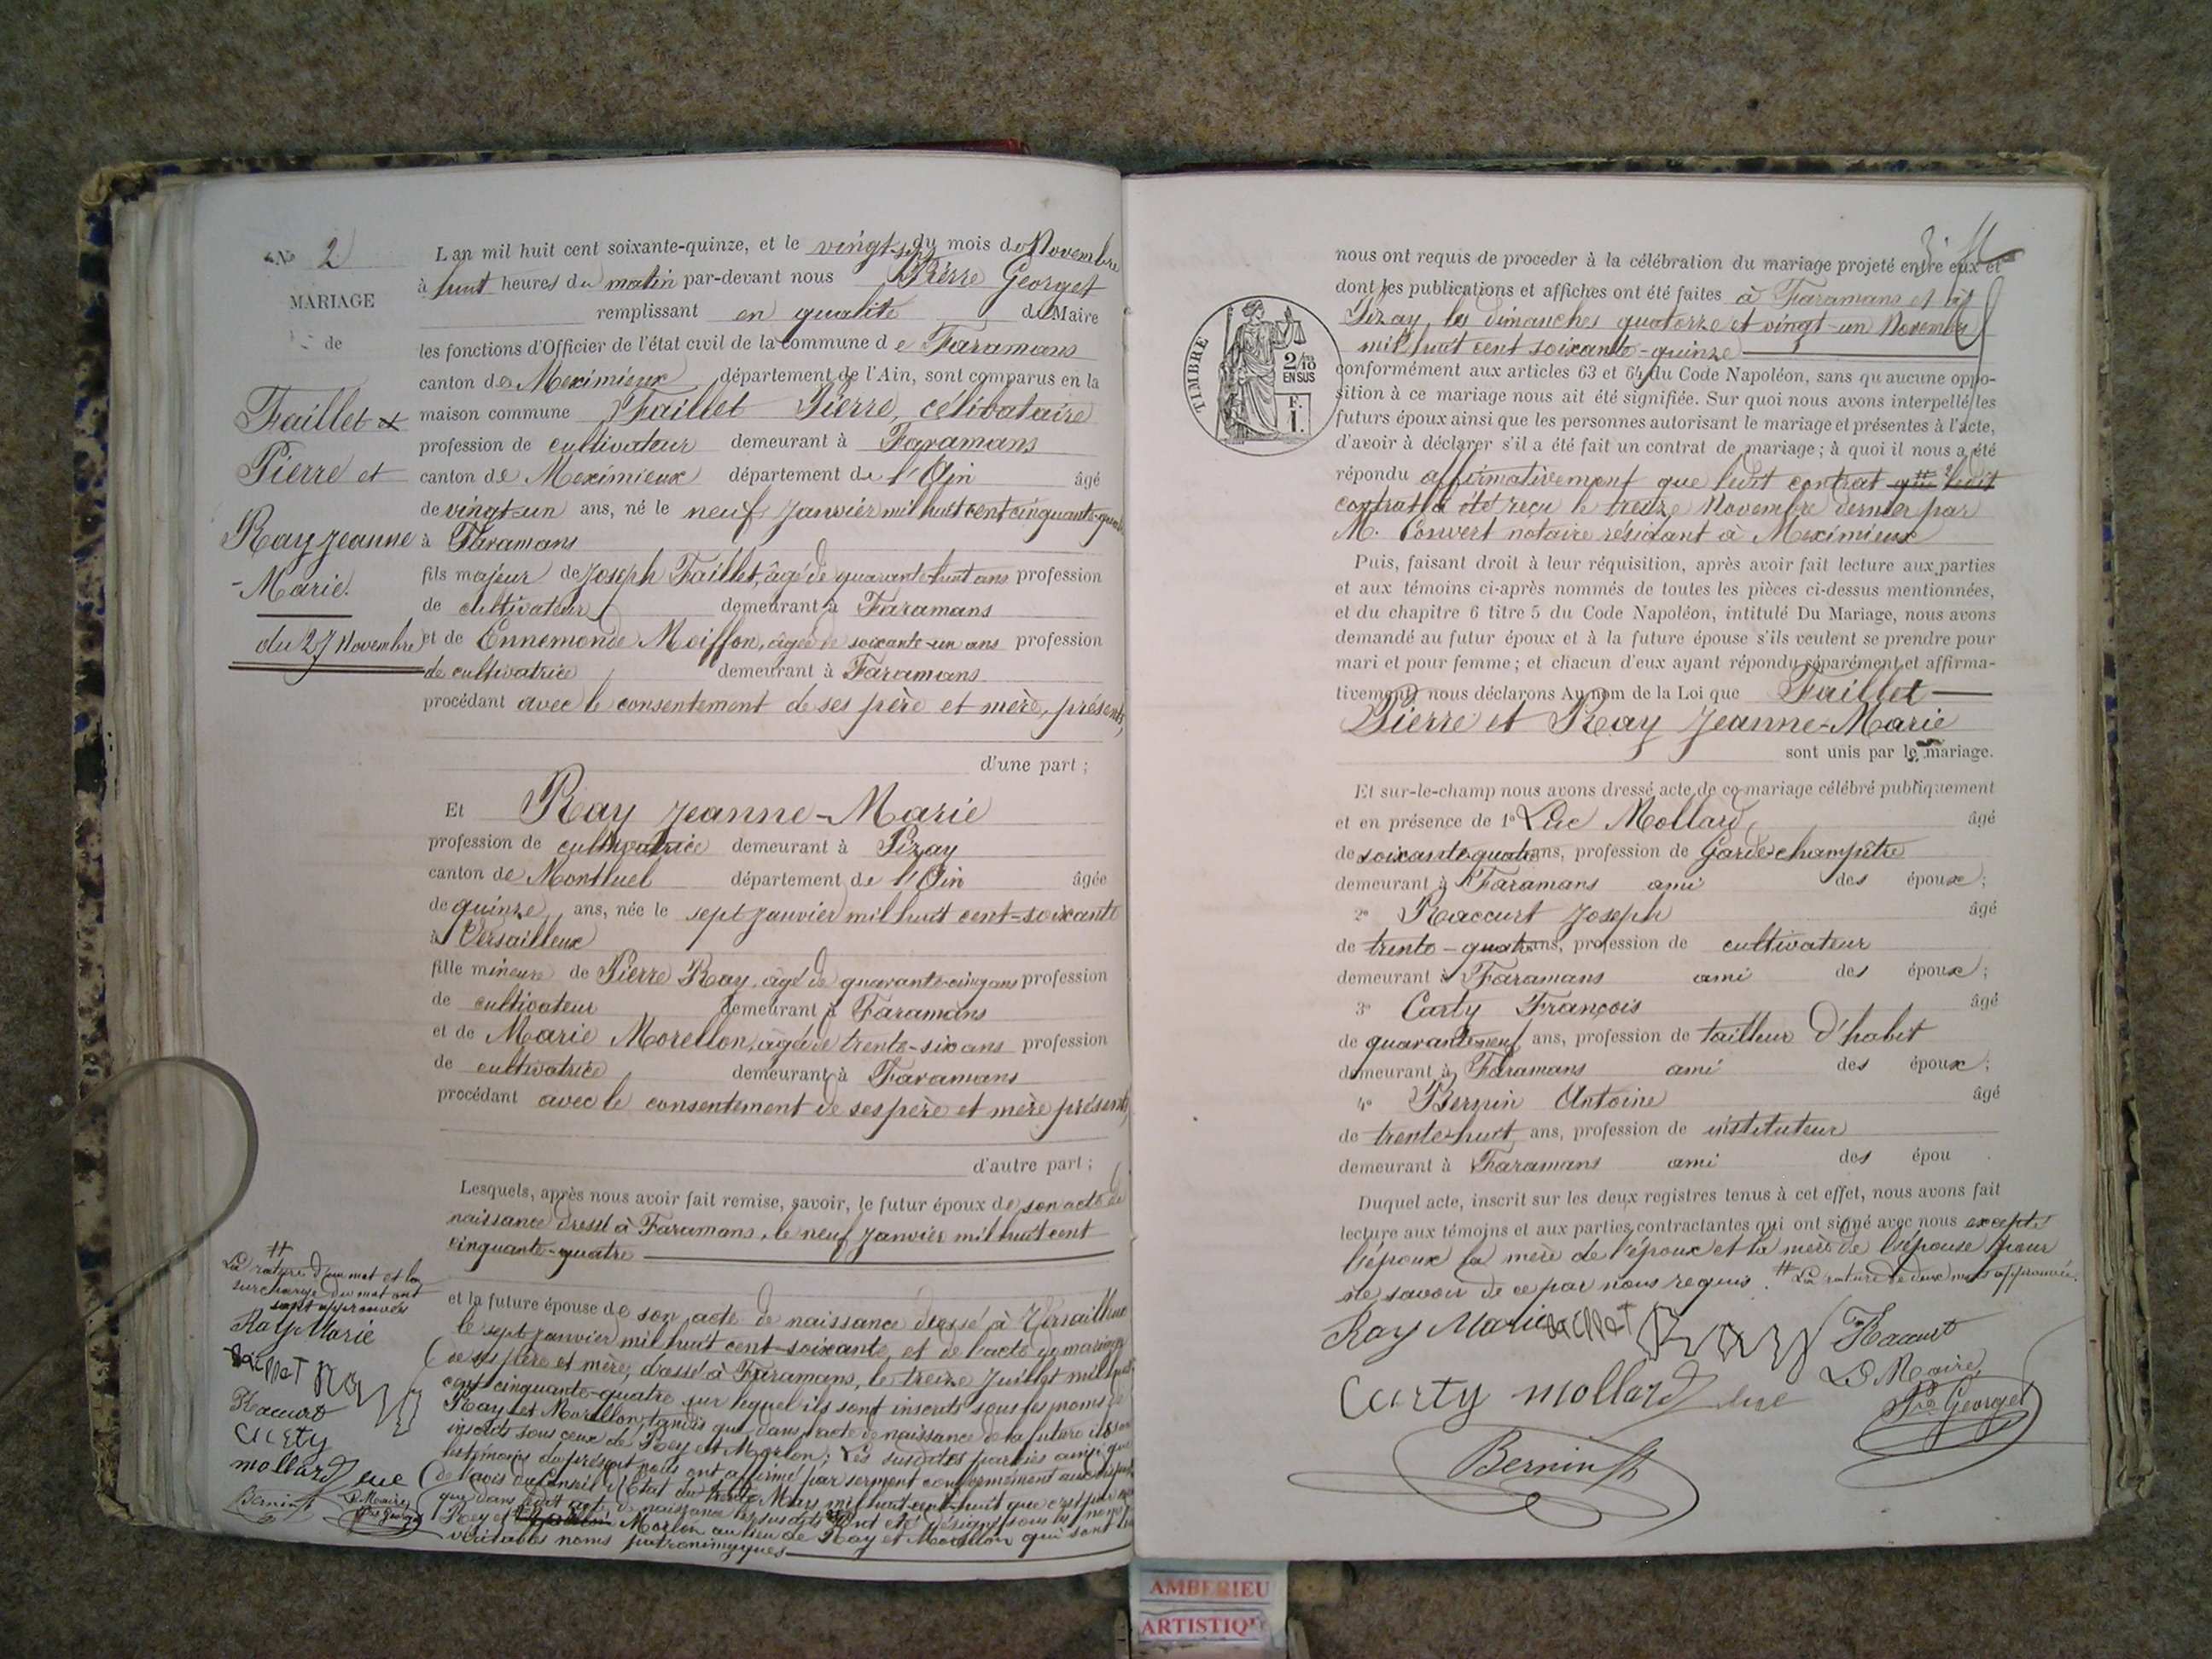 No 2
MARIAGE
de
Faillet
Pierre et
Ray Jeanne
-Marie.
du 27 Novembre
L'an mil huit cent soixante-quinze, et le vingt-sept du mois de Novembre
à huit heures du matin par-devant nous Pierre Georget
remplissant en qualité de Maire
les fonctions d'Officier de l'état civil de la commune de Faramans
canton de Meximieux département de l'Ain, sont comparus en la
maison commune Faillet Pierre, célibataire
profession de cultivateur demeurant à Faramans
canton de Meximieux département de l'Ain âgé
de vingt-un ans, né le neuf Janvier mil huit cent cinquante-quatre
à Faramans
fils majeur de Joseph Faillet, âgé de quarante-huit ans profession
de cultivateur demeurant à Faramans
et de Ennemonde Moiffon, âgée de soixante-un ans profession
de cultivatrice demeurant à Faramans
procédant avec le consentement de ses père et mère, présents,
d'une part ;
Et Ray Jeanne-Marie
profession de cultivatrice demeurant à Pizay
canton de Montluel département de l'Ain âgée
de quinze ans, née le sept Janvier mil huit cent-soixante
à Versailleux
fille mineure de Pierre Ray, âgé de quarante-cinq ans profession
de cultivateur demeurant à Faramans
et de Marie Morellon, âgée de trente-six ans profession
de cultivatrice demeurant à Faramans
procédant avec le consentement de ses père et mère présents,
d'autre part ;
Lesquels, après nous avoir fait remise, savoir, le futur époux de son acte de
naissance dressé à Faramans, le neuf Janvier mil huit cent
cinquante-quatre
et la future épouse de son acte de naissance dressé à Versailleux
le sept Janvier mil huit cent-soixante, et de l'acte de mariage
de ses père et mère, dressé à Faramans, le treize Juillet mil huit
cent cinquante-quatre sur lequel ils sont inscrits sous les noms de
Ray et Morellon, tandis que dans l'acte de naissance de la future ils sont
inscrits sous ceux de Rey et Morlon ; Les susdites parties ainsi que
les témoins du présent nous ont affirmé par serment conformément aux
de l'avis du Conseil d'Etat du trente Mars mil huit cent-huit que c'est par
que dans ledit acte de naissance les susdits ont été désignés sous les noms de
Rey et Morlon au lieu de Ray et Morellon qui sont
véritables noms patronimyques
#
La rature d'un mot et la
surcharge du mot ont
sont approuvées
Ray Marie
Faillet Ray
Raccurt
Curty
mollard luc
Bernin
Le Maire
Pre Georget
nous ont requis de proceder à la célébration du mariage projeté entre eux et
dont les publications et affiches ont été faites à Faramans et à
Pizay, les dimanches quatorze et vingt-un Novembre
mil huit cent soixante-quinze
TIMBRE
2/10
EN SUS
F.
1.
conformément aux articles 63 et 64 du Code Napoléon, sans qu'aucune oppo-
sition à ce mariage nous ait été signifiée. Sur quoi nous avons interpellé les
futurs époux ainsi que les personnes autorisant le mariage et présentes à l'acte,
d'avoir à déclarer s'il a été fait un contrat de mariage ; à quoi il nous a été
répondu affirmativement que ledit contrat # ledit
contrat a été reçu le treize Novembre dernier par
M. Convert notaire résidant à Meximieux
Puis, faisant droit à leur réquisition, après avoir fait lecture aux parties
et aux témoins ci-après nommés de toutes les pièces ci-dessus mentionnées,
et du chapitre 6 titre 5 du Code Napoléon, intitulé Du Mariage, nous avons
demandé au futur époux et à la future épouse s'ils veulent se prendre pour
mari et pour femme ; et chacun d'eux ayant répondu séparément et affirma-
tivement, nous déclarons Au nom de la Loi que Faillet
Pierre et Ray Jeanne-Marie
sont unis par le mariage.
Et sur-le-champ nous avons dressé acte de ce mariage célébré publiquement
et en présence de 1° Luc Mollard, âgé
de soixante-quatre ans, profession de Garde-champêtre
demeurant à Faramans ami des époux ;
2° Raccurt Joseph âgé
de trente-quatre ans, profession de cultivateur
demeurant à Faramans ami des époux ;
3° Carty François âgé
de quarante-neuf ans, profession de tailleur d'habit
demeurant à Faramans ami des époux ;
4° Bernin Antoine âgé
de trente-huit ans, profession de instituteur
demeurant à Faramans ami des épou .
Duquel acte, inscrit sur les deux registres tenus à cet effet, nous avons fait
lecture aux témoins et aux parties contractantes qui ont signé avec nous excepté
l'époux la mère de l'époux et la mère de l'épouse pour
ne savoir de ce par nous requis. # La rature de deux mots approuvée.
Ray Marie Faillet Ray Raccurt
Curty mollard luc Le Maire
Pre Georget
Bernin
AMBERIEU
ARTISTIQUE